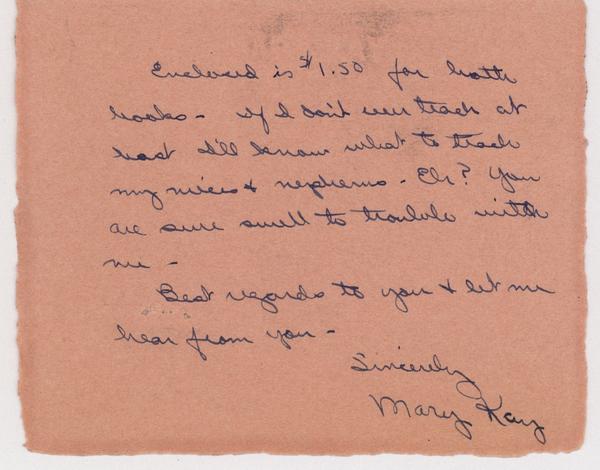 Enclosed is $1.50 for both
books - If I don't ever teach at
least I'll know what to teach
my nieces & nephews - Eh? You
are sure swell to trouble with
me -
Best regards to you & let me
hear from you -
Sincerely
Mary Kay